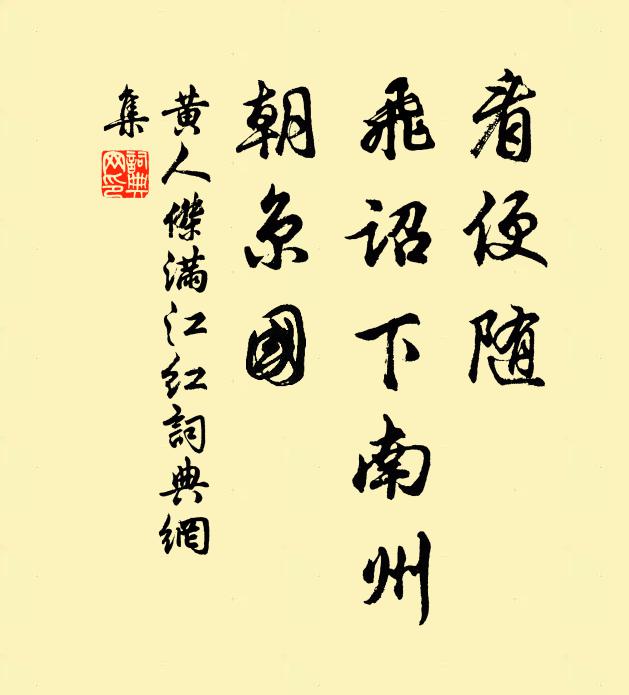 看便随
飛詔下南州
朝京國
黄人傑满江红詞典網
集
詞典
网印